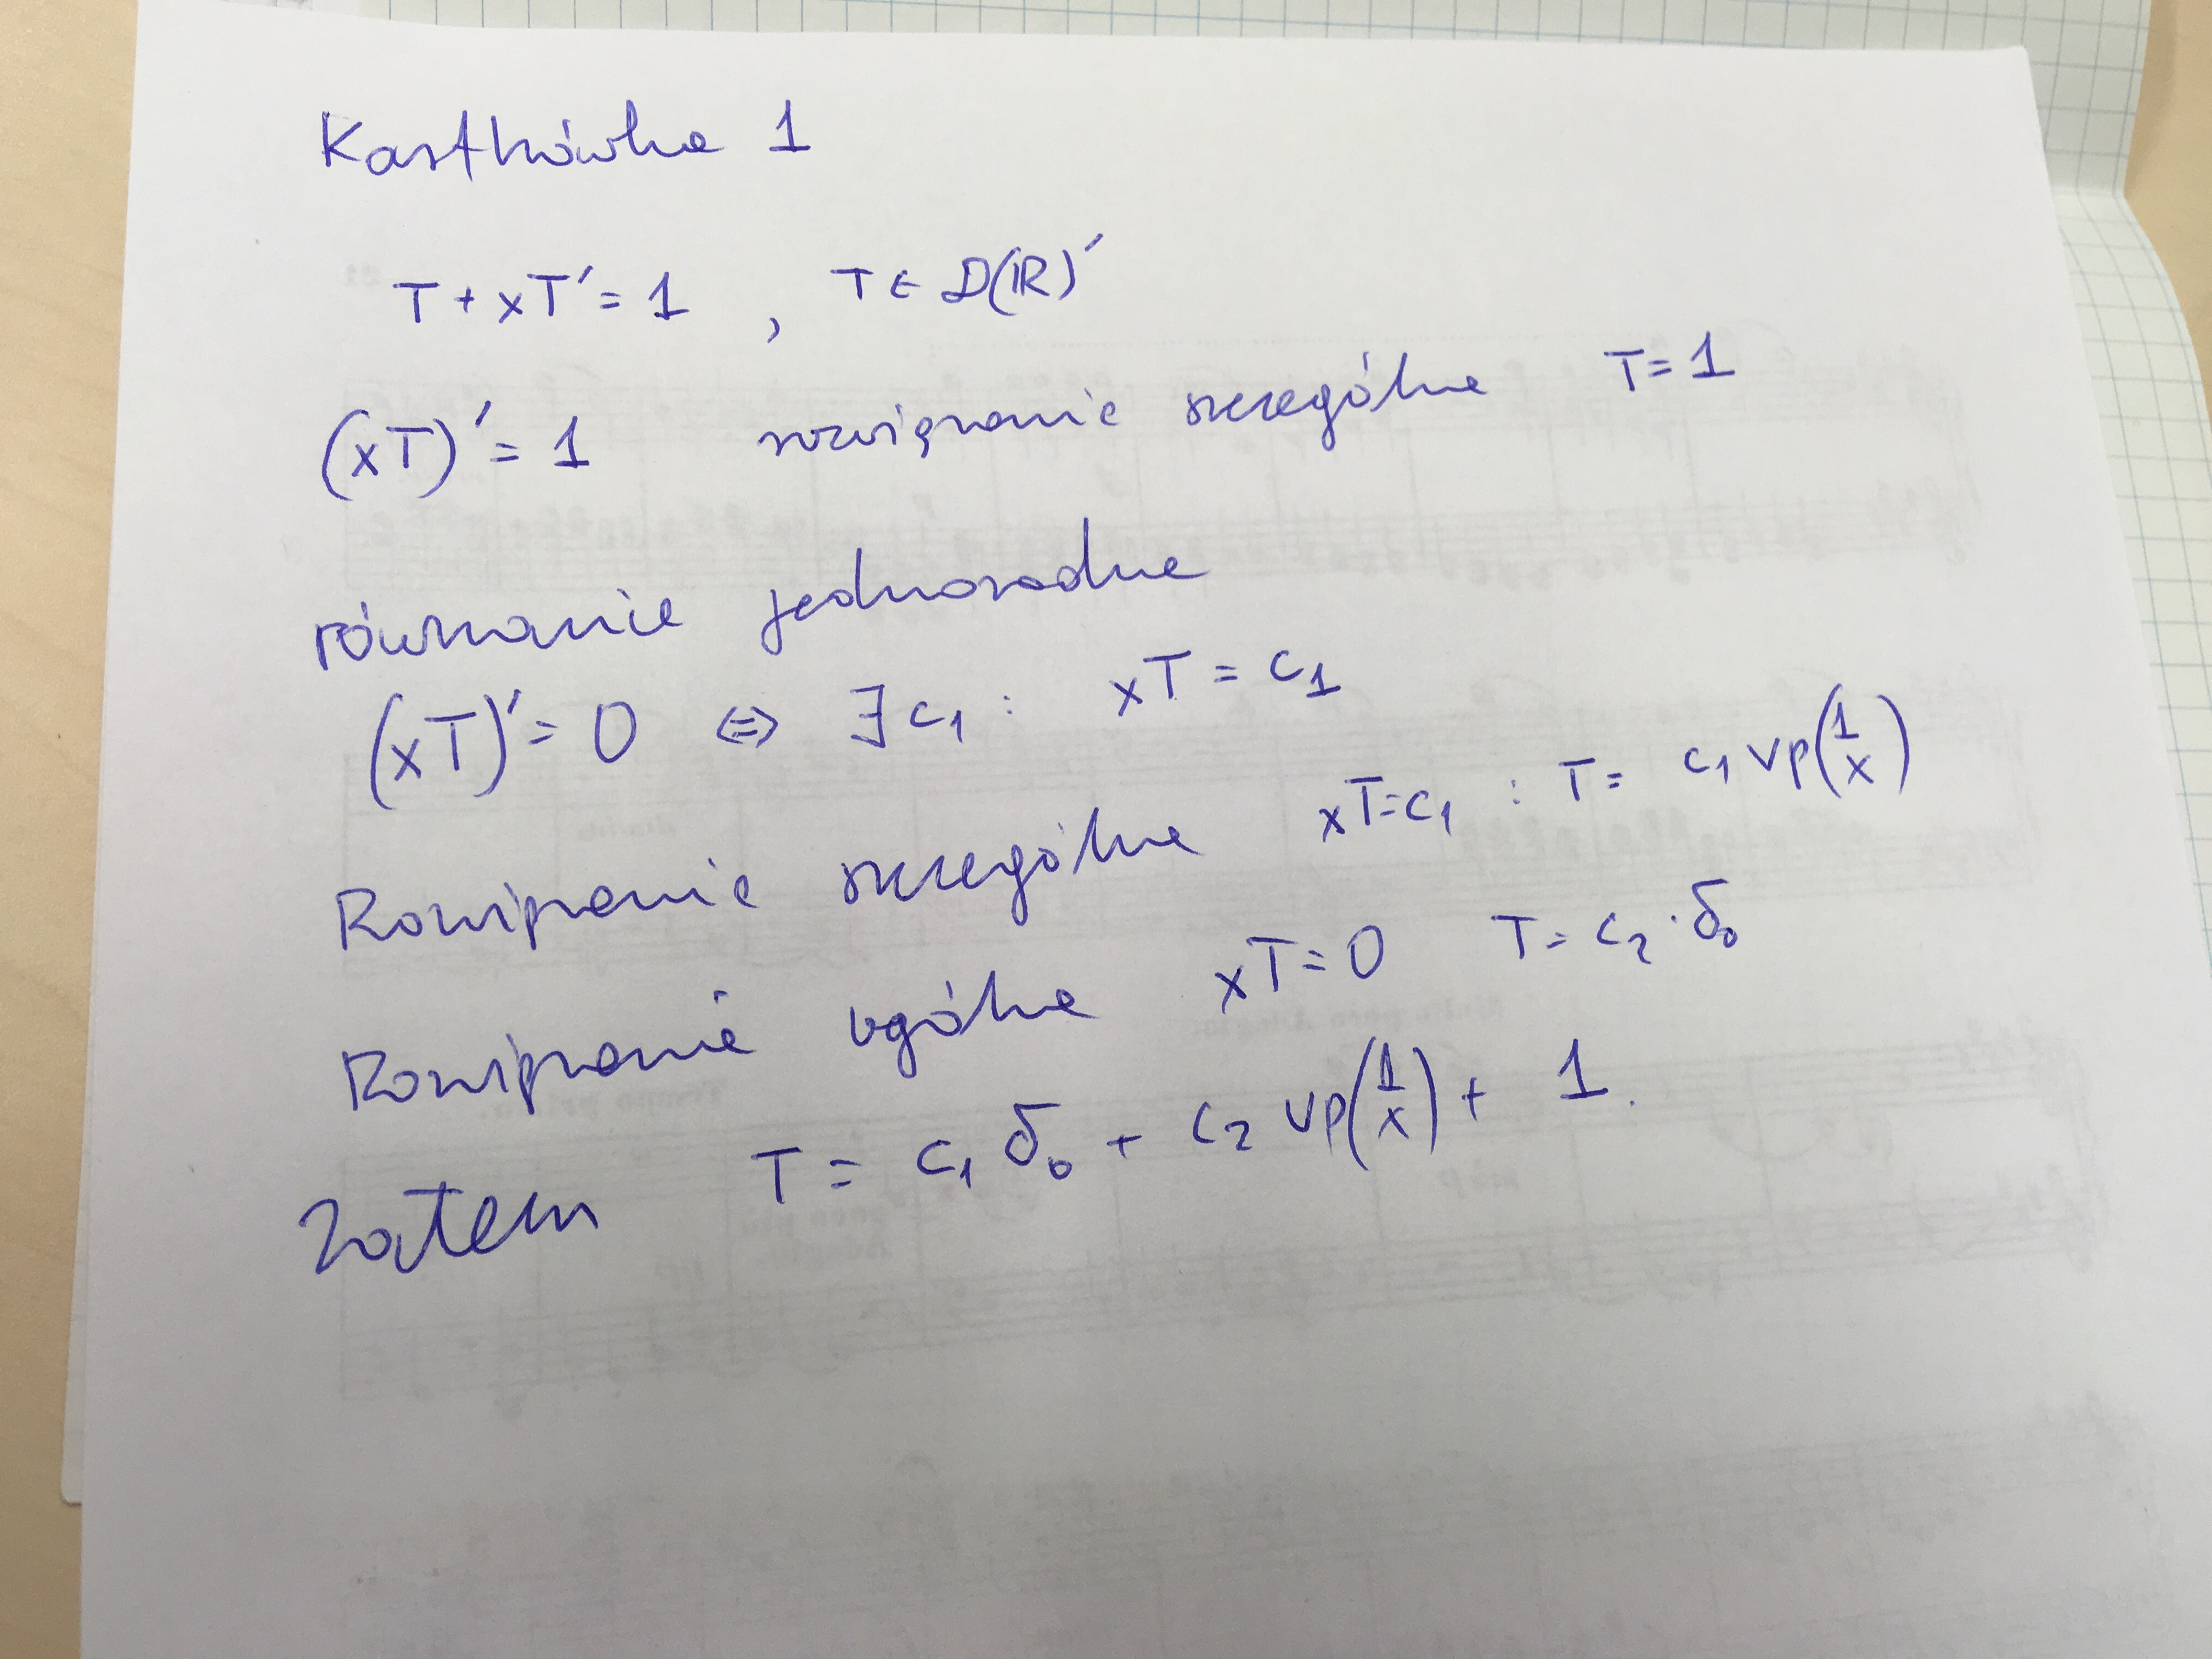 Kartkówka 1
T + xT' = 1 , T ∈ D(ℝ)'
(xT)' = 1 rozwiązanie szczególne T = 1
równanie jednorodne
(xT)' = 0 ⇔ ∃ c₁ : xT = c₁
Rozwiązanie szczególne xT = c₁ : T = c₁ vp(1/x)
Rozwiązanie ogólne xT = 0 T = c₂ · δ₀
Zatem T = c₁ δ₀ + c₂ vp(1/x) + 1.